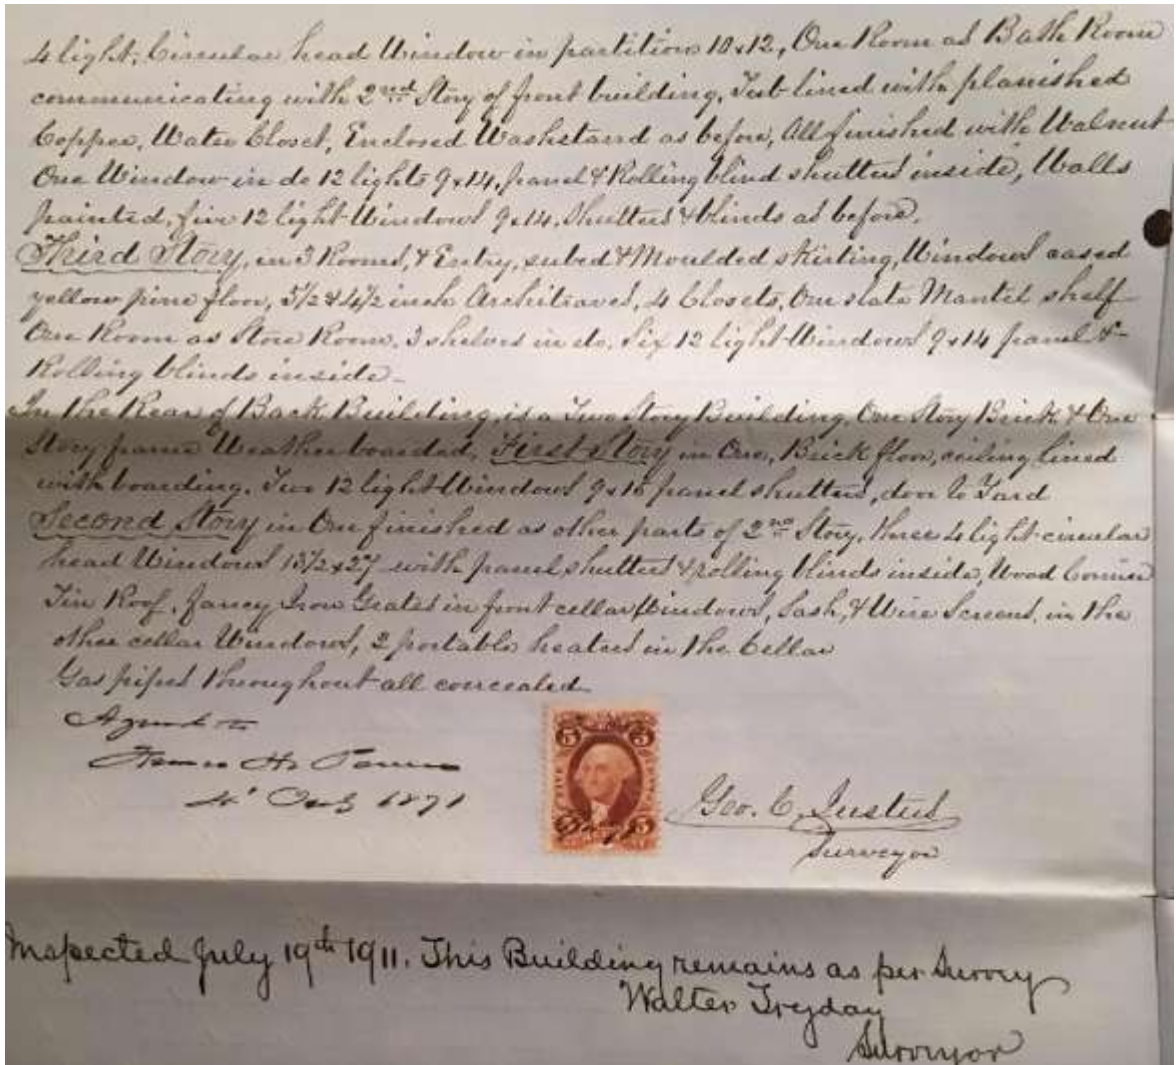 4 light, Circular head Window in partition 10x12, One Room as Bath Room
communicating with 2nd Story of front building, Tub lined with planished
Copper, Water Closet, Enclosed Washstand as before, All finished with Walnut
One Window in do 12 lights 9x14, panel & Rolling blind shutters inside, Walls
painted, five 12 light Windows 9x14, Shutters & blinds as before.
Third Story, in 3 Rooms, & Entry, subed & Moulded skirting, Windows cased
yellow pine floor, 5½ & 4½ inch Architraves, 4 Closets, One slate Mantel shelf
One Room as Store Room, 3 shelves in do, Six 12 light Windows 9x14 panel &
Rolling blinds inside
In the Rear of Back Building, is a Two Story Building, One Story Brick & One
Story frame Weather boarded, First Story in One, Brick floor, ceiling lined
with boarding, Two 12 light Windows 9x16 panel shutters, door to Yard
Second Story in One finished as other parts of 2nd Story, three 4 light circular
head Windows x27 with panel shutters & rolling blinds inside, Wood Cornice
Tin Roof, fancy Iron Grates in front cellar Windows, Sash, & Wire Screens, in the
other cellar Windows, 2 portable heaters in the Cellar
Gas pipes throughout all concealed
Agreed to
H.
1871
5 5
FIVE CENTS
Geo. C. Justus
Surveyor
Inspected July 19th 1911. This Building remains as per Survey
Walter Treyday
Surveyor